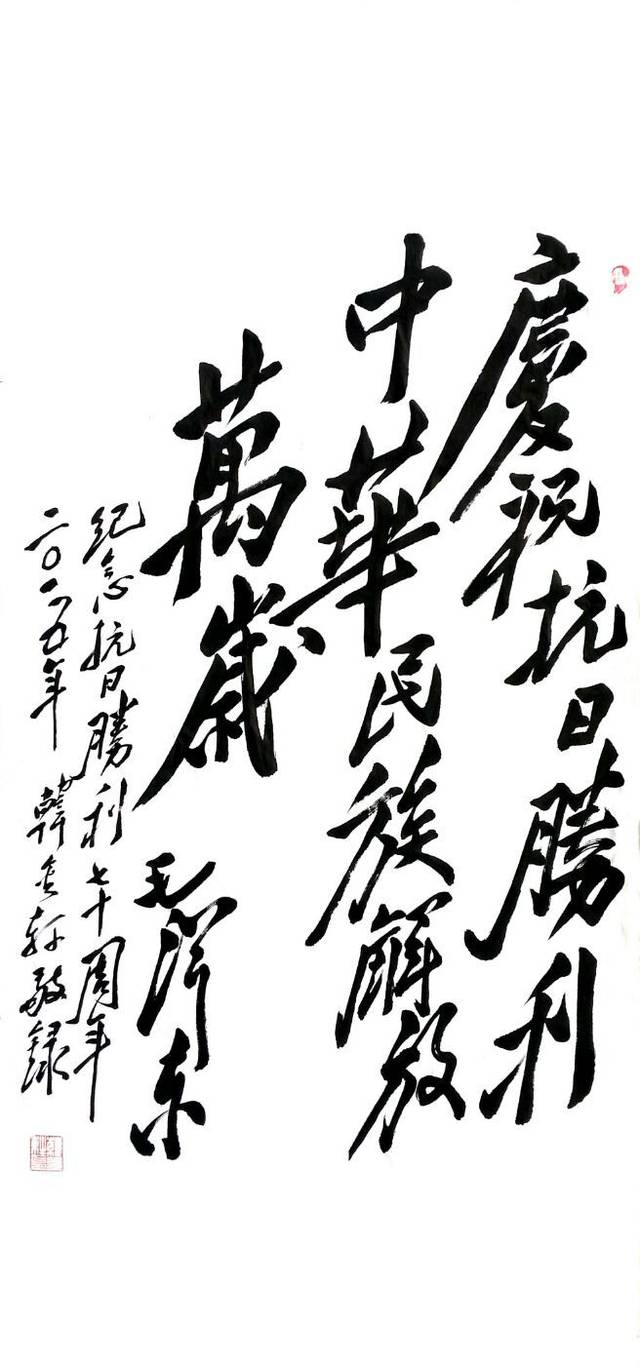 慶祝抗日勝利
中華民族解放
萬歲
毛泽东
紀念抗日勝利七十周年
二〇一五年 韓金軒敬録